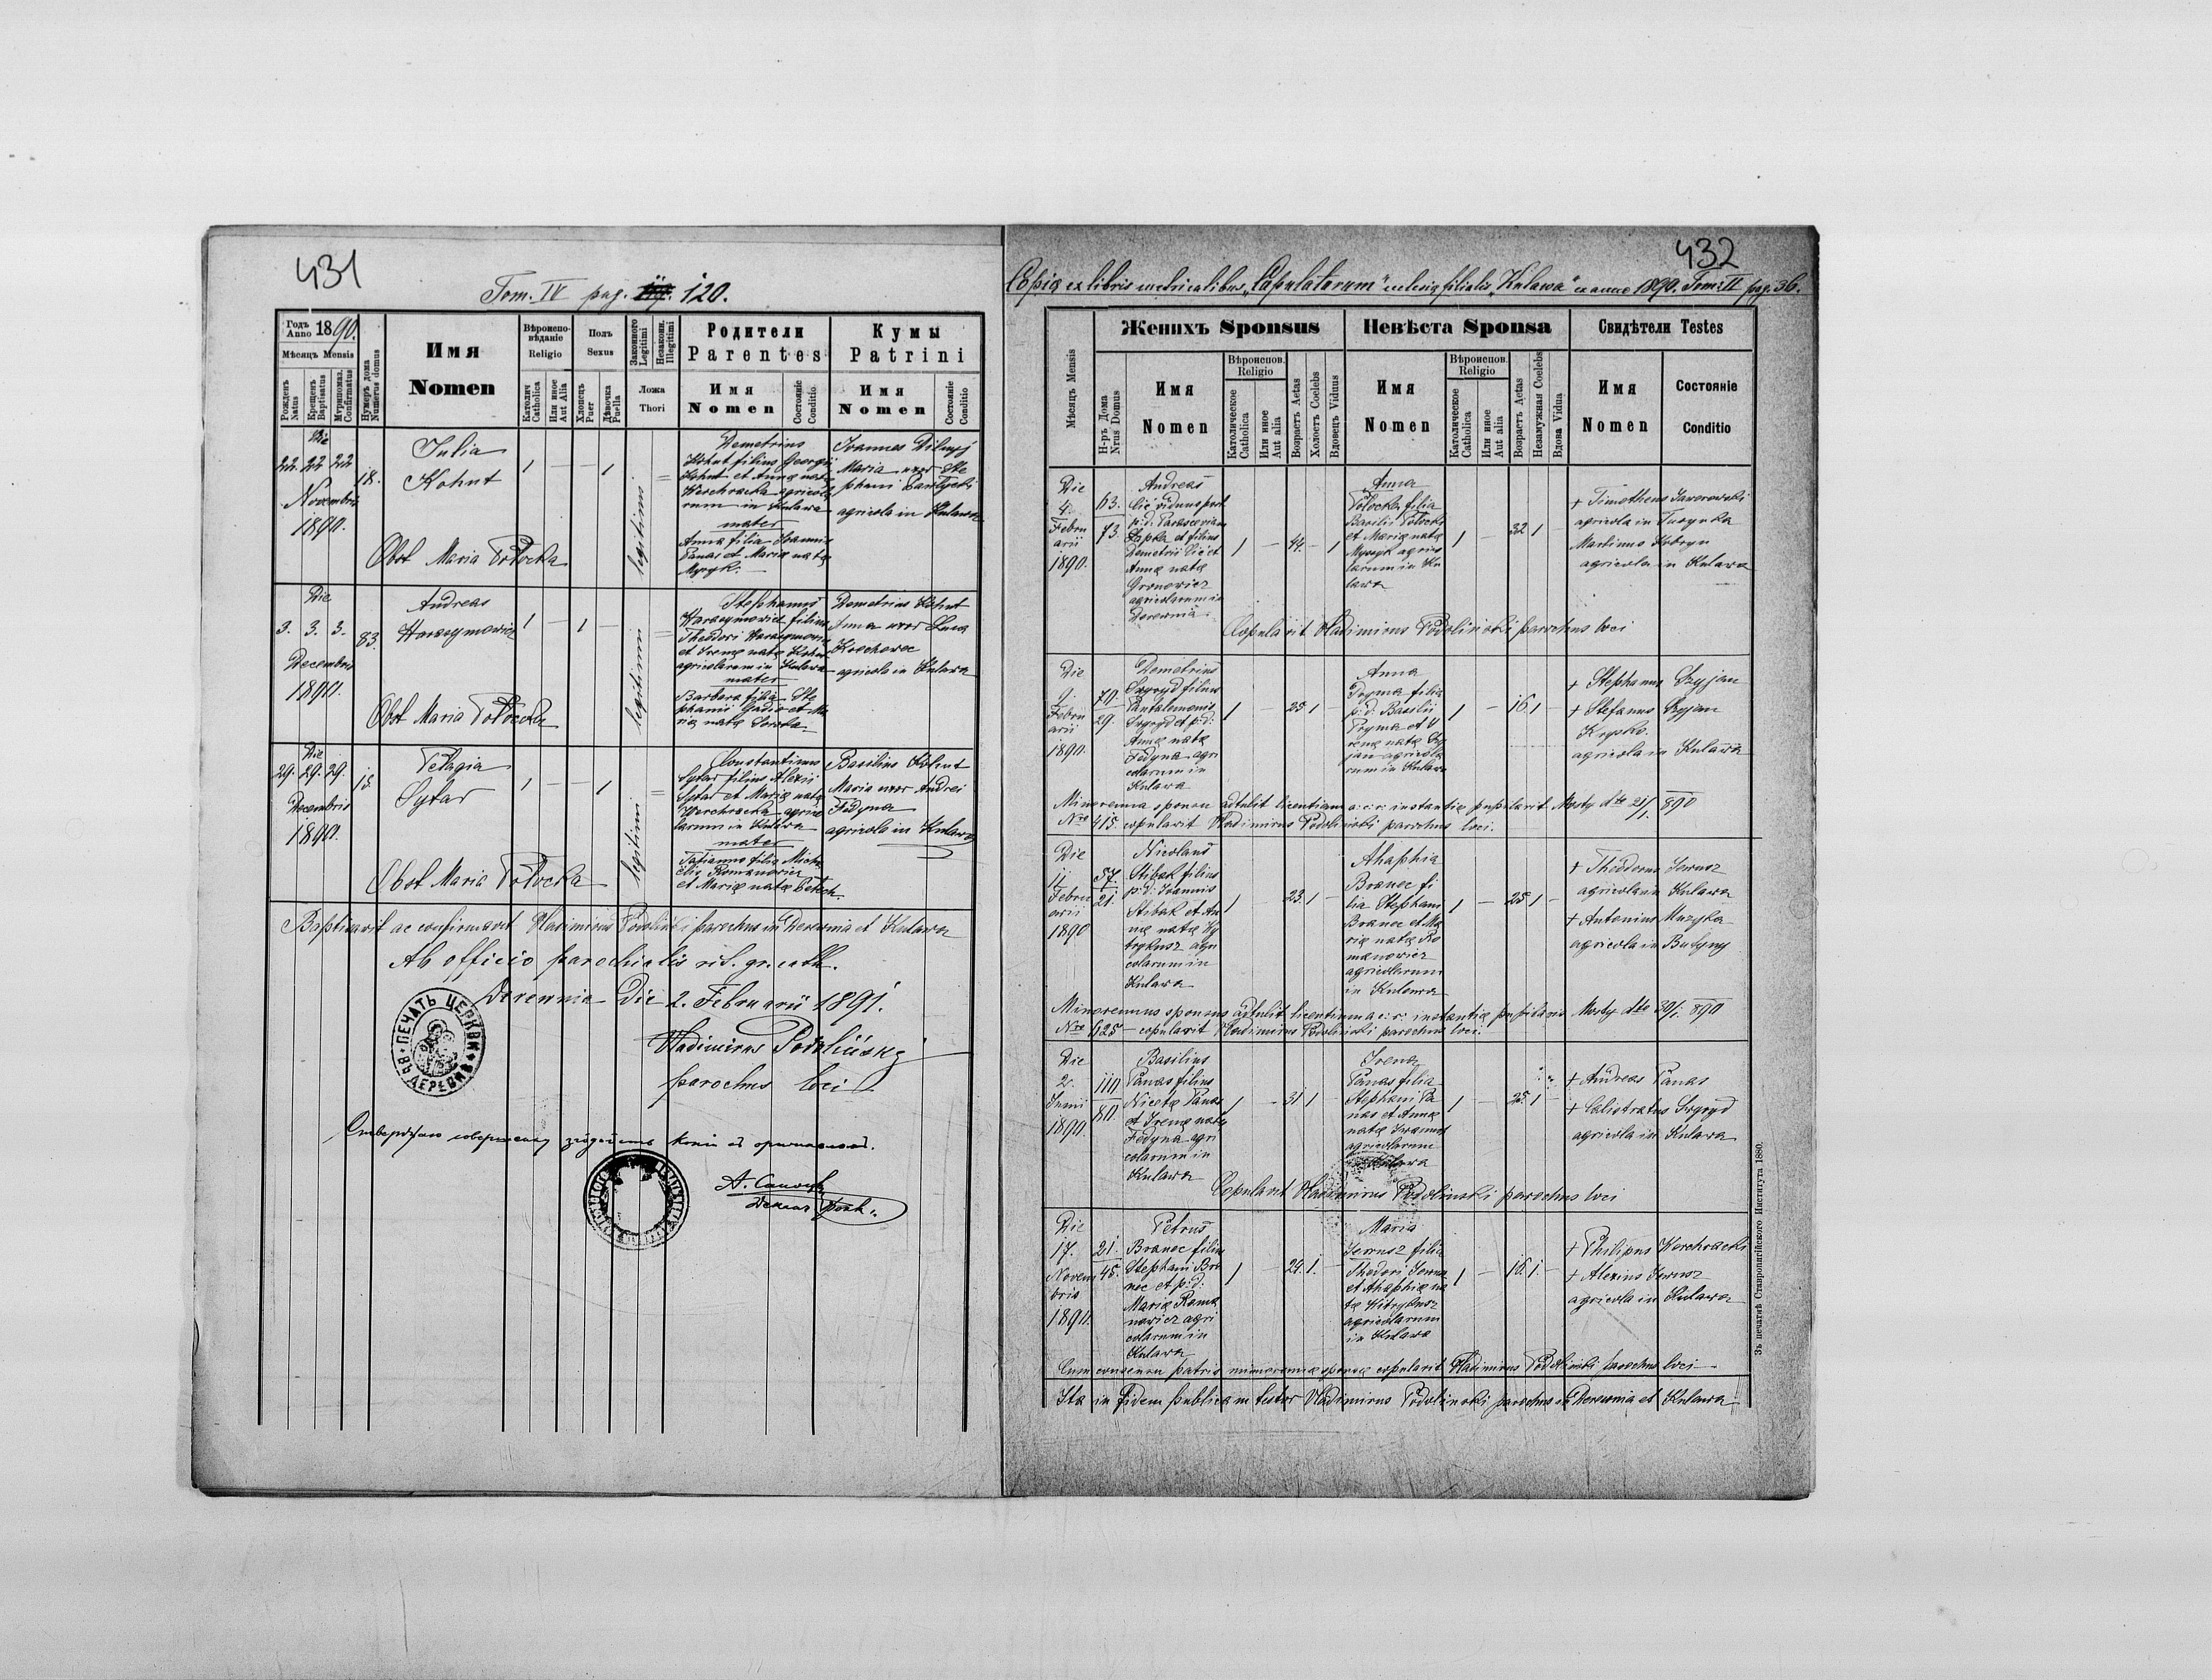 431
Tom. IV pag. 120.
Годъ Anno 1890.
Мѣсяцъ Mensis
Рожденъ Natus
Крещенъ Baptisatus
Мѵропомаз. Confirmatus
Нумеръ дома Numerus domus
Имя
Nomen
Вѣроисповѣданіе
Religio
Католич Catholica
Или иное Aut Alia
Полъ
Sexus
Хлопецъ Puer
Дѣвочка Puella
Законного Legitimi
Незаконн. Illegitimi
Ложа
Thori
Родители
Parentes
Имя
Nomen
Состояніе Conditio
Кумы
Patrini
Имя
Nomen
Состояніе Conditio
Die
22. 22 22
Novembris
1890.
18.
Julia
Kohut
1 — — 1
legitimi
Demetrius
Kohut filius Georgii
Kohut et Annæ natæ
Werchracka agricola
rum in Kulawa
mater
Anna filia Joannis
Panas et Mariæ natæ
Myzyk.
Joannes Dilnyj
Maria uxor Ste
phani
agricola in Kulawa
Obst Maria Potocka
Die
3. 3. 3.
Decembris
1890.
83.
Andreas
Harasymowicz
1 — 1 —
legitimi
Stephanus
Harasymowicz filius
Theodori Harasymowicz
et Irenæ natæ Kohut
agricolarum in Kulawa
mater
Barbara filia Ste
phani et Ma
riæ natæ
Demetrius Kohut
Anna uxor Lucæ
agricola in Kulawa
Obst Maria Potocka
Die
29. 29. 29.
Decembris
1890.
15.
Pelagia
Sytar
1 — — 1
legitimi
Constantinus
Sytar filius Alexii
Sytar et Mariæ natæ
Werchracka agrico
larum in Kulawa
mater
Tatianna filia Micha
elis Romanowicz
et Mariæ natæ
Basilius Kohut
Maria uxor Andrei
Fedyna
agricola in Kulawa
Obst Maria Potocka
Baptisavit ac confirmavit Vladimirus Podoliński parochus in Derewnia et Kulawa
Ab officio parochialis rit. gr. cath.
Derewnia Die 2. Februarii 1891.
Vladimirus Podolińskyj
parochus loci
ПЕЧАТЬ ЦЕРКВИ
ВЪ ДЕРЕВНѢ
432
Copia ex libris metricalibus „Copulatorum" ecclesiæ filialis „Kulawa" ex anno 1890. Tom: II pag. 36.
Мѣсяцъ Mensis
Женихъ Sponsus
Н-ръ Дома Nrus Domus
Имя
Nomen
Вѣроиспов. Religio
Католическое Catholica
Или иное Aut alia
Возрастъ Aetas
Холостъ Coelebs
Вдовецъ Viduus
Невѣста Sponsa
Имя
Nomen
Вѣроиспов. Religio
Католическое Catholica
Или иное Aut alia
Возрастъ Aetas
Незамужная Coelebs
Вдова Vidua
Свидѣтели Testes
Имя
Nomen
Состояніе
Conditio
Die
4.
Febru
arii
1890.
63.
73.
Andreas
viduus post
p: d: Parasceviam
Łapka et filius
Demetrii et
Annæ natæ
Gronowicz
agricolarum in
Derewnia
1 — 44. — 1
Anna
Potocka filia
Basilii Potocki
et Mariæ natæ
Myzyk agrico
larum in Ku
lawa
1 — 32 1 —
+ Timotheus Jaworowski
agricola in Turynka
Martinus Kobryn
agricola in Kulawa
Copulavit Vladimirus Podoliński parochus loci
Die
9.
Febru
arii
1890.
70.
29.
Demetrius
Srygyd filius
Pantalemonis
Srygyd et p: d:
Annæ natæ
Fedyna agri
colarum in
Kulawa
1 — 25 1 —
Anna
Pryma filia
p: d: Basilii
Pryma et I
renæ natæ Szy
jan agricola
rum in Kulawa
1 — 16. 1 —
+ Stephanus Szyjan
+ Stefanus Szyjan
Krysko.
agricola in Kulawa
Minorenna sponsa adtulit licentiam a: c: r: instantiæ pupilarit Mosty dto 21/1. 890
Nro 415. copulavit Vladimirus Podoliński parochus loci.
Die
11.
Febru
arii
1890
57.
21.
Nicolaus
Stibak filius
p: d: Joannis
Stibak et An
næ natæ Hy
trykusz agri
colarum in
Kulawa
1 — 23. 1 —
Ahaphia
Branec fi
lia Stephani
Branec et Ma
riæ natæ Ro
manowicz
agricolarum
in Kulawa
1 — 25 1 —
+ Theodorus Jowusz
agricola in Kulawa
+ Antonius Muzyka
agricola in Butyny
Minorennus sponsus adtulit licentiam a: c: r: instantiæ pupilaris Mosty dto 30/1. 890
Nro 625 — copulavit Vladimirus Podoliński parochus loci.
Die
2.
Junii
1890.
110
80
Basilius
Panas filius
Nicetæ Panas
et Irenæ natæ
Fedyna agri
colarum in
Kulawa
1 — 31 1 —
Irena
Panas filia
Stephani Pa
nas et Annæ
natæ
agricolarum
in Kulawa
1 — 25. 1 —
+ Andreas Panas
+ Calistratus Srygyd
agricola in Kulawa
Copulavit Vladimirus Podoliński parochus loci
Die
17.
Novem
bris
1890.
21.
45.
Petrus
Branec filius
Stephani Bra
nec et p: d:
Mariæ Roma
nowicz agri
colarum in
Kulawa
1 — 24. 1. —
Maria
Jowusz filia
Theodori Jowusz
et Ahaphiæ na
tæ Hitrykusz
agricolarum
in Kulawa
1 — 18. 1. —
+ Philipus Werchracki
+ Alexius Jowusz
agricola in Kulawa
Cum consensu patris minorennæ sponsæ copulavit Vladimirus Podoliński parochus loci
Ita in fidem publicam testor Vladimirus Podoliński parochus in Derewnia et Kulawa
Зъ печатнѣ Ставропигійского Института 1880.